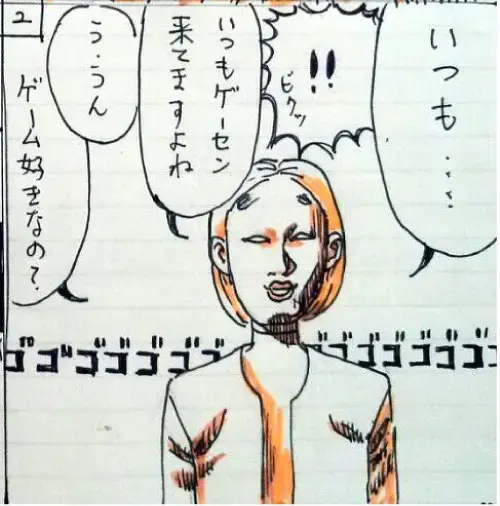 2
いつも・・・
!!
ビクッ
いつもゲーセン
来てますよね
う・うん
ゲーム好きなの?
ゴゴゴゴゴゴゴ ゴゴゴゴゴゴゴ